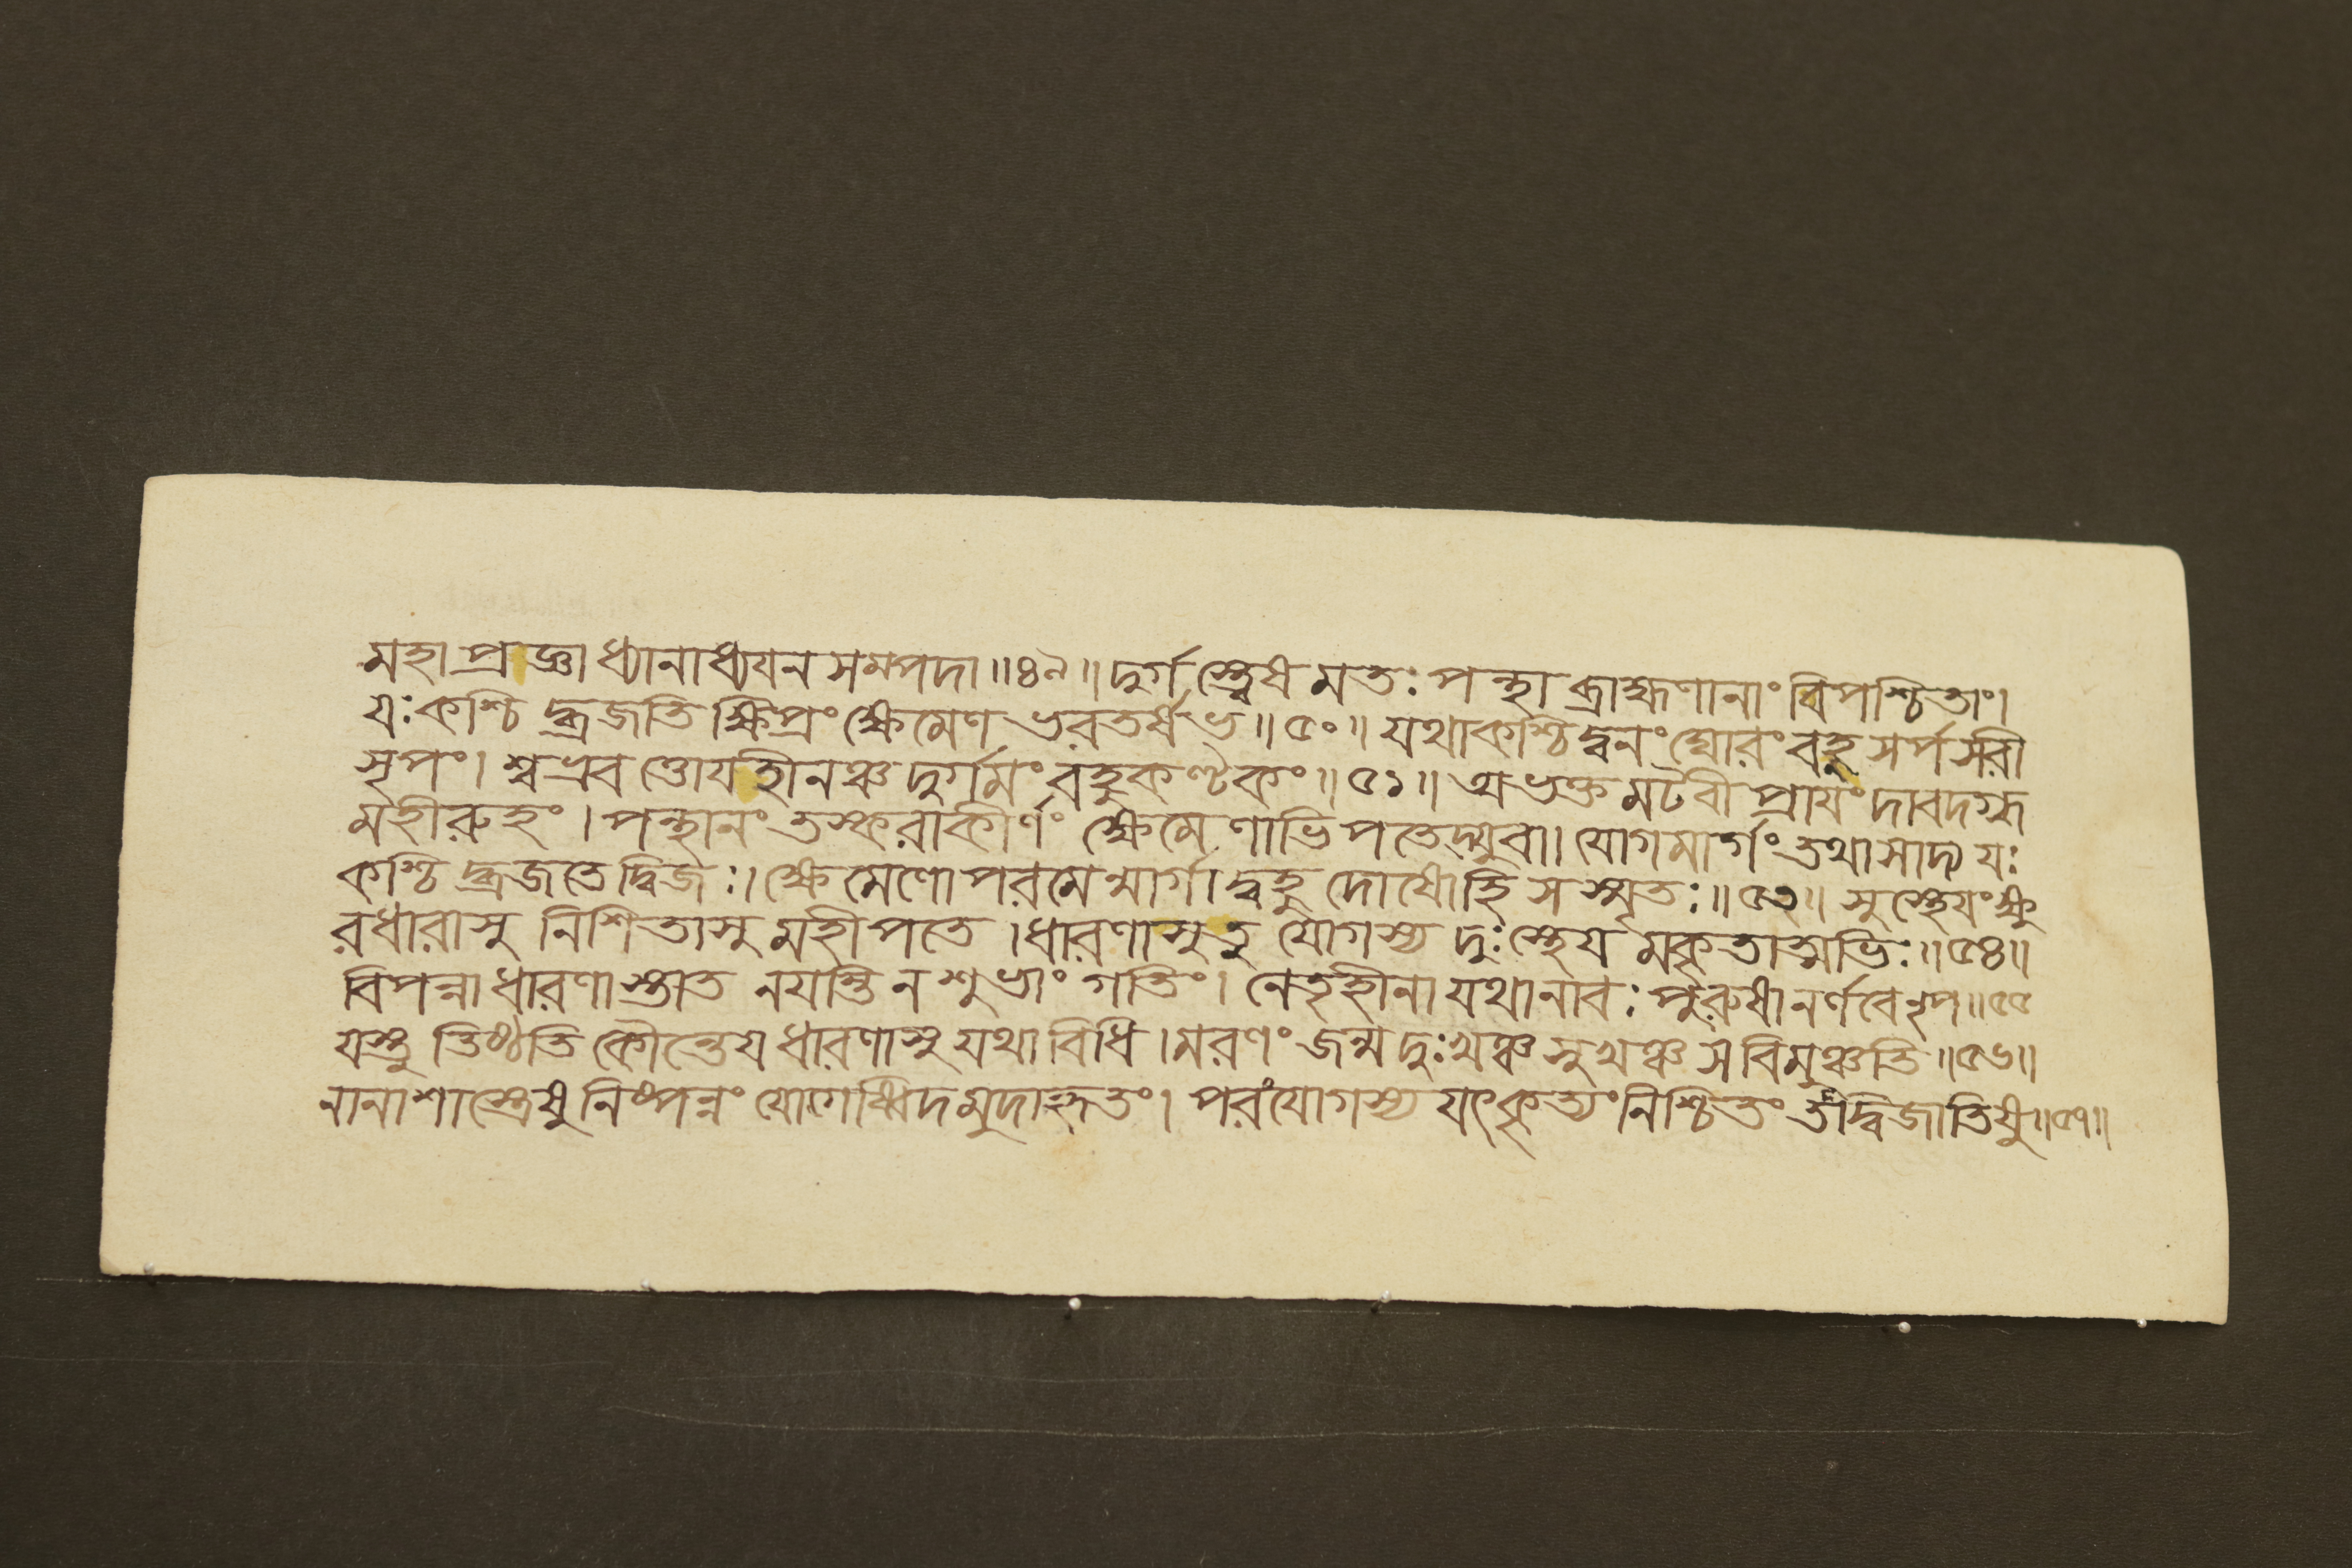 মহাপ্রাজ্ঞা ধ্যানাধ্যযনসমপদা॥৪৯॥ দুর্গস্ত্বেষ মতঃ পন্থা ব্রাহ্মণানাং বিপশ্চিতাং।
যঃ কশ্চিদ্ব্রজতি ক্ষিপ্রং ক্ষেমেণ ভরতর্ষভ॥৫০॥ যথা কশ্চিদ্বনং ঘোরং বহুসর্পসরী
সৃপং। শ্বভ্রবত্তোযহীনঞ্চ দুর্গমং বহুকণ্টকং॥৫১॥ অভক্তমটবীপ্রাযং দাবদগ্ধ
মহীরুহং। পন্থানং তস্করাকীর্ণং ক্ষেমেণাভিপতেদ্যুবা। যোগমার্গং তথাসাদ্য যঃ
কশ্চিদ্ব্রজতে দ্বিজঃ। ক্ষেমেণোপরমেন্মার্গাদ্বহুদোষো হি স স্মৃতঃ॥৫৩॥ সুস্থেযং ক্ষু
রধারাসু নিশিতাসু মহীপতে। ধারণাসু তু যোগস্য দুঃস্থেযমকৃতাত্মভিঃ॥৫৪॥
বিপন্না ধারণাস্তাত নযন্তি ন শুভাং গতিং। নেতৃহীনা যথা নাবঃ পুরুষানর্ণবে নৃপ॥৫৫
যস্তু তিষ্ঠতি কৌন্তেয ধারণাসু যথাবিধি। মরণং জন্ম দুঃখঞ্চ সুখঞ্চ স বিমুঞ্চতি॥৫৬॥
নানাশাস্ত্রেষু নিষ্পন্নং যোগেষ্বিদমুদাহৃতং। পরং যোগস্য যৎকৃত্যং নিশ্চিতং তদ্দ্বিজাতিষু॥৫৭॥